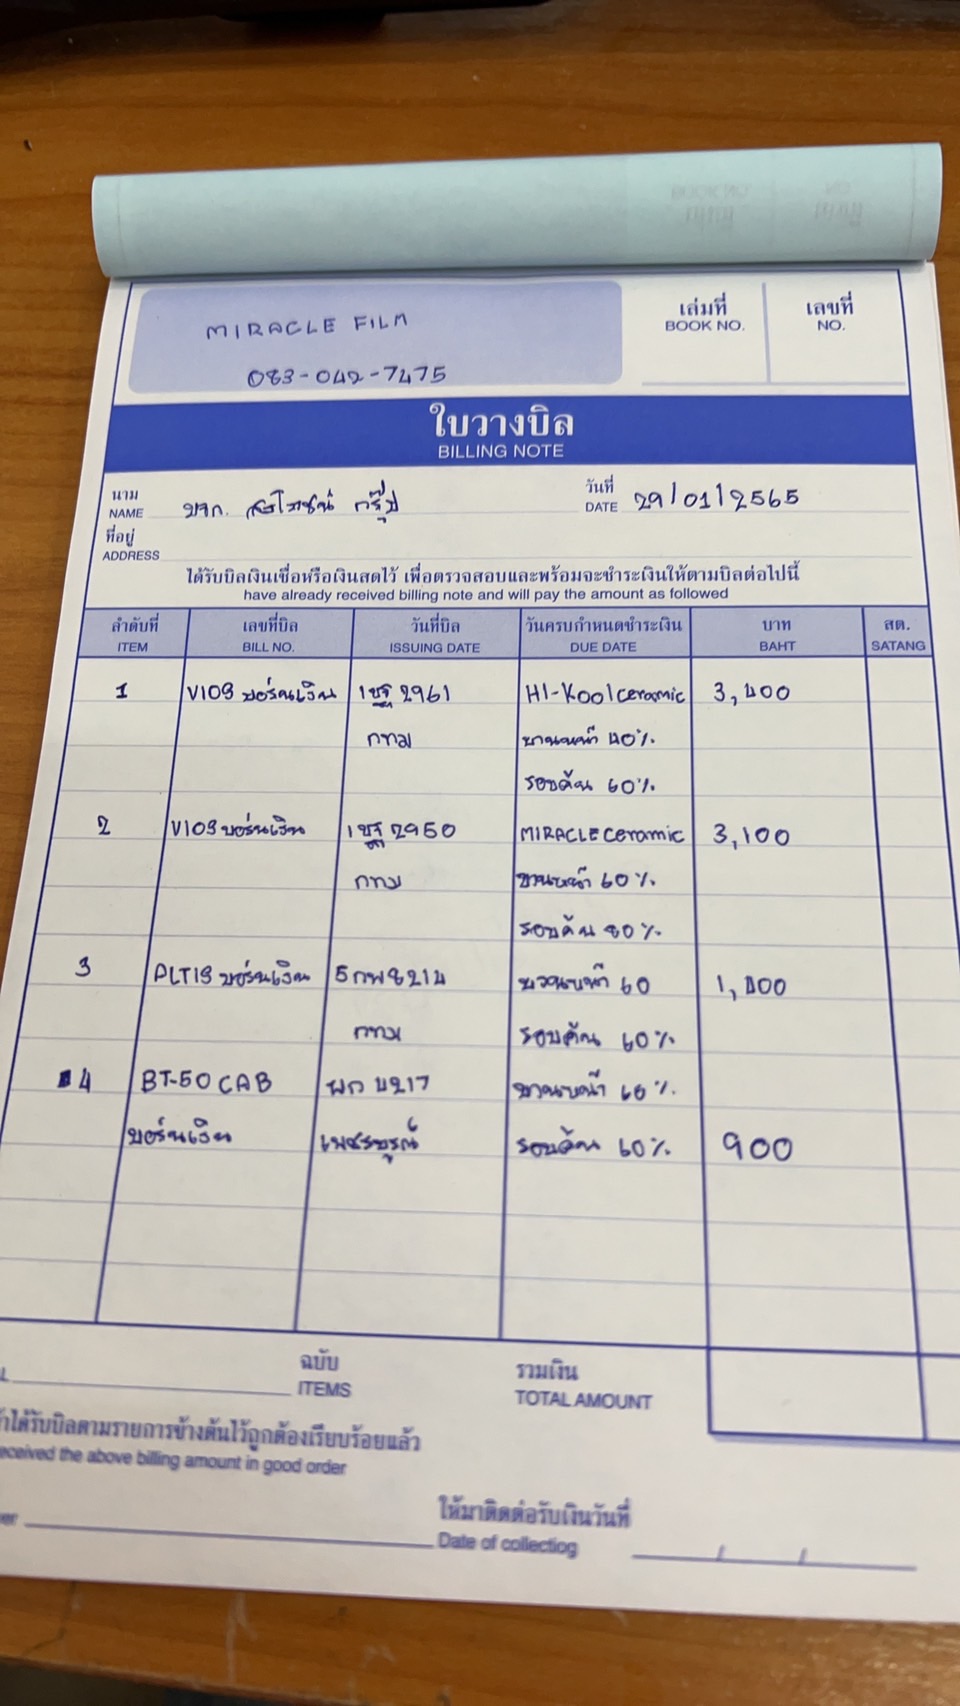 MIRACLE FILM
083-042-7475
เล่มที่
BOOK NO.
เลขที่
NO.
ใบวางบิล
BILLING NOTE
นาม
NAME
บจก. กรุ๊ป
วันที่
DATE 29/01/2565
ที่อยู่
ADDRESS
ได้รับบิลเงินเชื่อหรือเงินสดไว้ เพื่อตรวจสอบและพร้อมจะชำระเงินให้ตามบิลต่อไปนี้
have already received billing note and will pay the amount as followed
ลำดับที่ เลขที่บิล วันที่บิล วันครบกำหนดชำระเงิน บาท สต.
ITEM BILL NO. ISSUING DATE DUE DATE BAHT SATANG
1 V109 บอร์นเงิน 1ขฐ 2961 HI-Kool ceramic 3,400
กทม บานหน้า 40%
รอบคัน 60%
2 V109 บอร์นเงิน 1ขฐ 2950 MIRACLE ceramic 3,100
กทม บานหน้า 60%
รอบคัน 80%
3 บอร์นเงิน 5กพ8214 บานหน้า 60 1,400
กทม รอบคัน 60%
4 BT-50 CAB ผก 4217 บานหน้า 60%
บอร์นเงิน เพชรบูรณ์ รอบคัน 60% 900
ฉบับ
ITEMS
รวมเงิน
TOTAL AMOUNT
ได้รับบิลตามรายการข้างต้นไว้ถูกต้องเรียบร้อยแล้ว
received the above billing amount in good order
ให้มาติดต่อรับเงินวันที่
Date of collecting / /